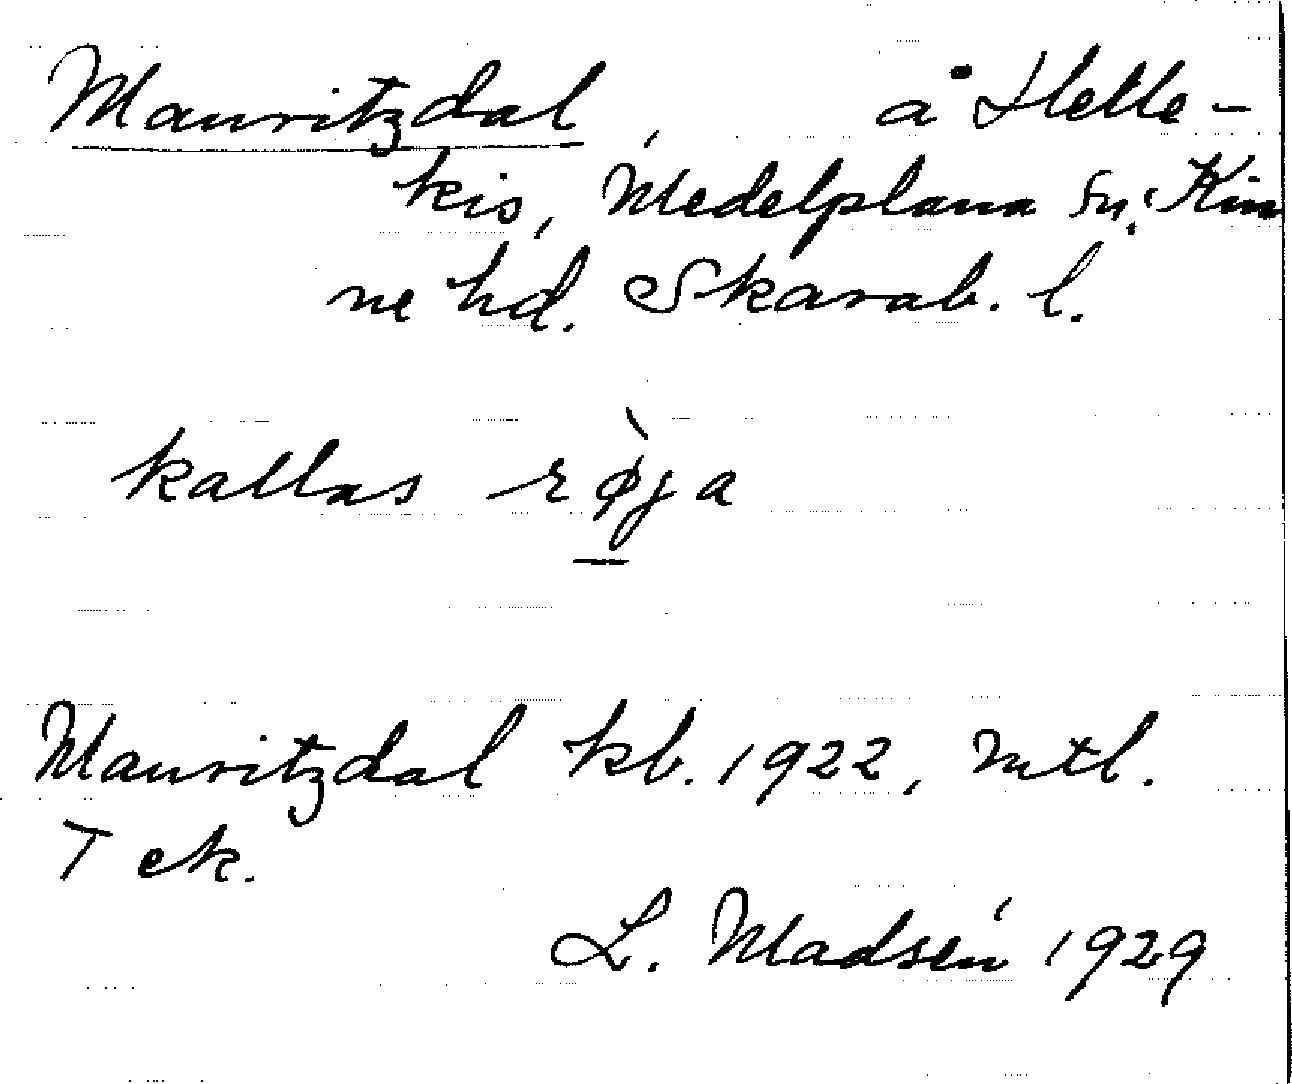 Mauritzdal, å Helle-
kis, Medelplana sn, Kin
ne hd. Skarab. l.
kallas rø̀ja
Mauritzdal kb. 1922, mtl.
T ek.
L. Madsén 1929